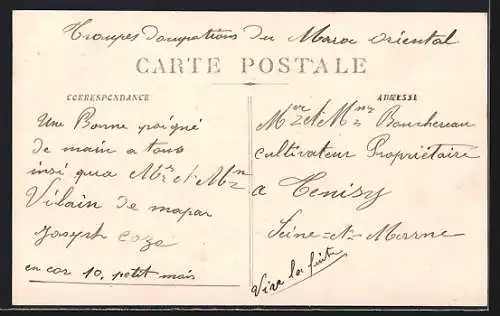 Troupes doccupations du Maroc oriental
CARTE POSTALE
CORRESPONDANCE
Une Bonne poigné
de main a tous
insi qua Mr et Mm
Vilain de mapar
Joseph
en cor 10, petit mois
ADRESSE
Mer et Mme Bouchereau
cultivateur Propriétaire
a Tenisy
Seine-et-Marne
Vive la fuite